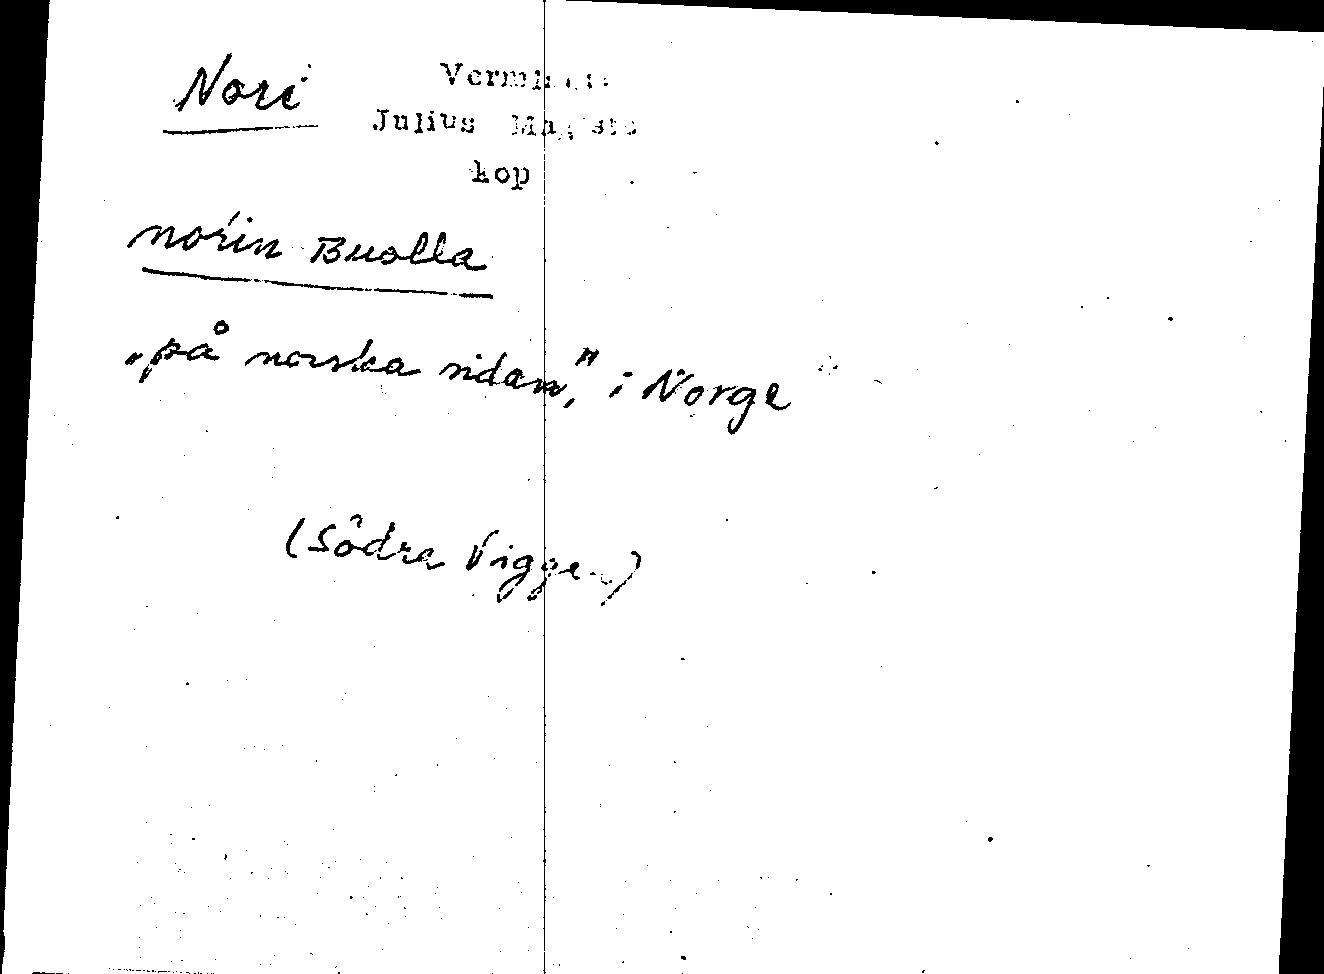 Nori
Vermlanti
Julius Mägiste
kop
noŕin Buolla
„på norska sidan,” i Norge
(Södra Viggen)